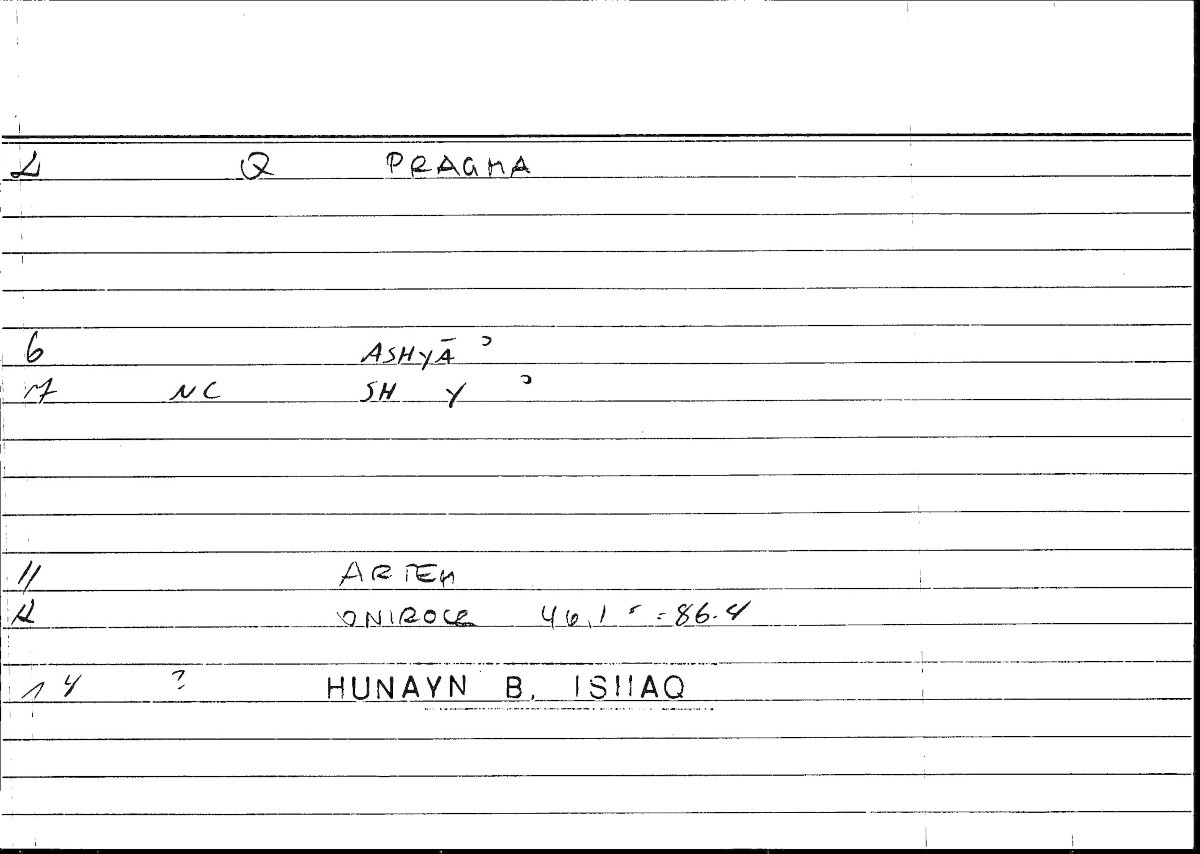 2 Q PRAGMA
6 ASHYĀʾ
7 NC SH Y ʾ
11 ARTEM
12 ONIROCR 46,1 - = 86.4
14 ? HUNAYN B. ISHAQ